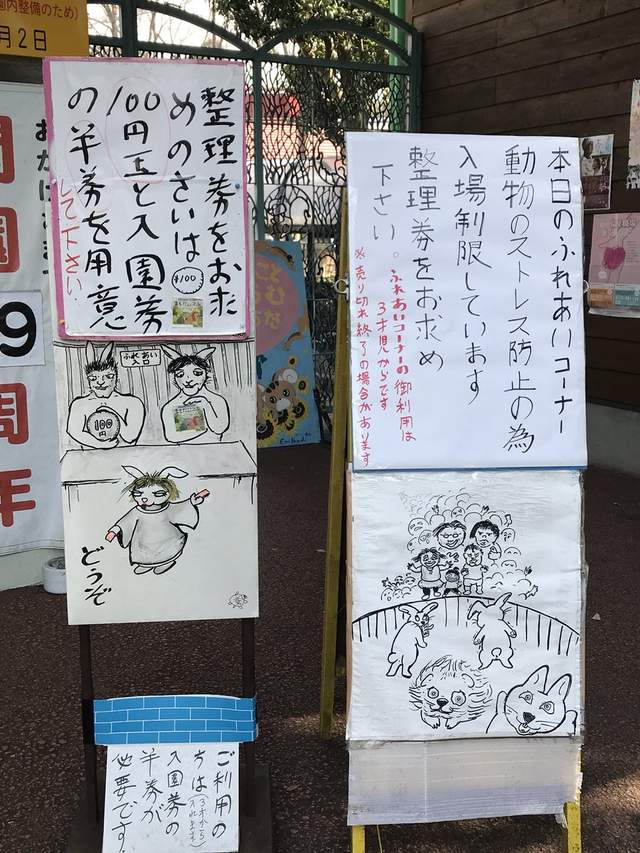 園内整備のため)
月2日
9
周
年
整理券をお求
めのさいは
100円玉と入園券
の半券を用意
して下さい
¥100
ふれあい
入口
100円
どうぞ
ご利用の
方は(3才から入れます)
入園券の
半券が
必要です!
本日のふれあいコーナー
動物のストレス防止の為
入場制限しています
整理券をお求め
下さい。
ふれあいコーナーの御利用は
3才児からです
※売り切れ終了の場合があります